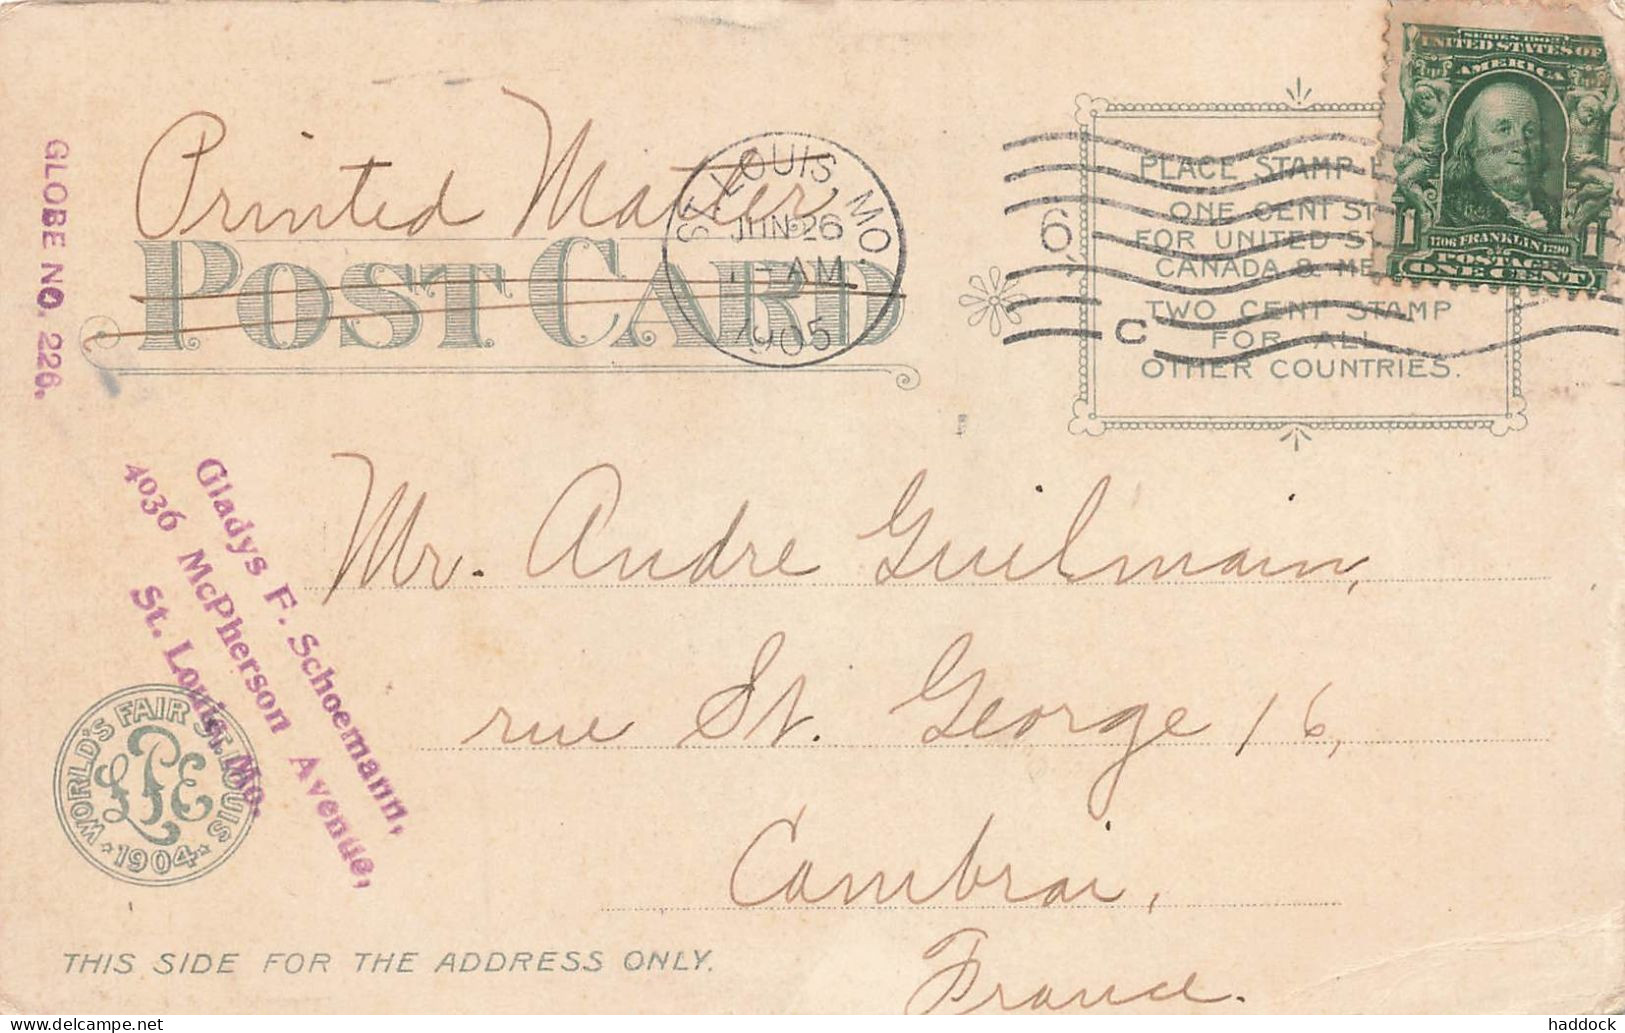 Printed Matter
POST CARD
GLOBE NO. 226.
ST. LOUIS, MO.
JUN 26
AM
1905
6
C
PLACE STAMP
ONE CENT ST
FOR UNITED S
CANADA & ME
TWO CENT STAMP
FOR ALL
OTHER COUNTRIES.
SERIES 1902
UNITED STATES OF
AMERICA
1706 FRANKLIN 1790
1 POSTAGE 1
ONE CENT
Gladys F. Schoemann,
4036 McPherson Avenue,
St. Louis, Mo.
Mr. Andre Guilmain,
rue St. George 16,
Cambrai,
France.
WORLD'S FAIR ST. LOUIS
LPE
1904
THIS SIDE FOR THE ADDRESS ONLY.
haddock